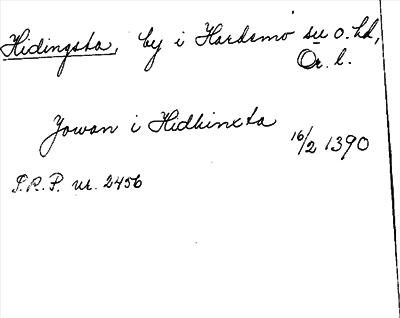 Hidingsta, by i Hardemo sn o. hd,
Ör. l.
Jowan i Hidhinxta
16/2 1390
P.R.P. nr. 2456